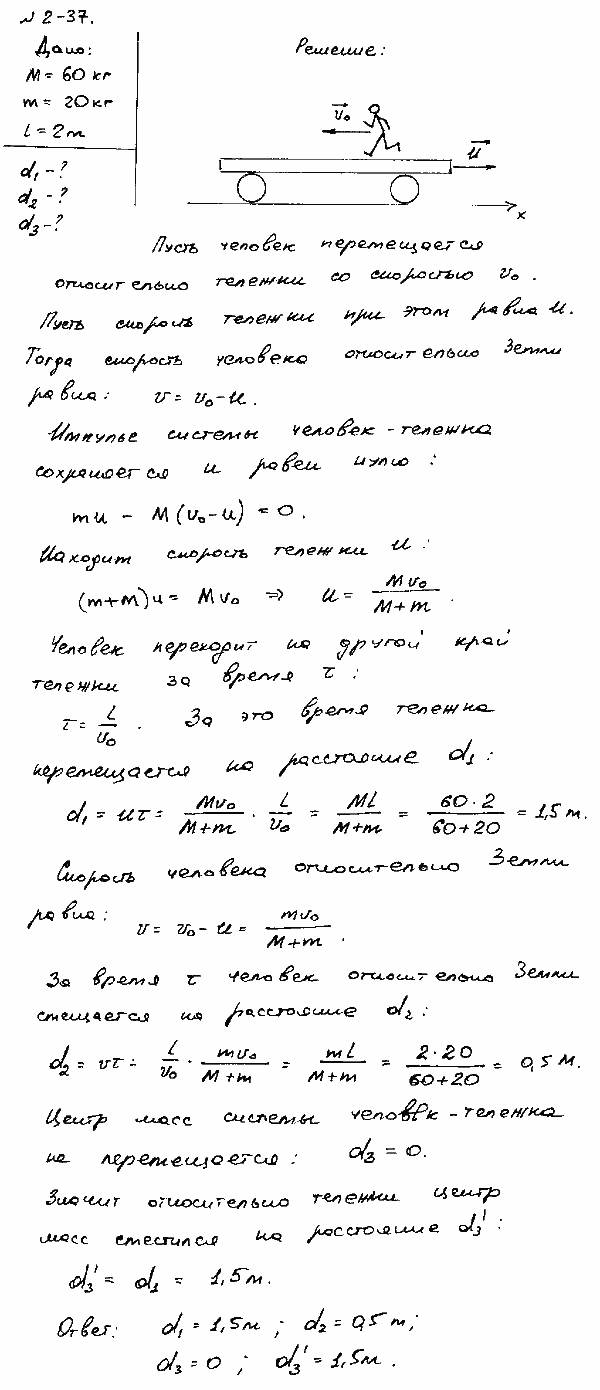 № 2-37.
Дано:
M = 60 кг
m = 20 кг
L = 2 м
d₁ - ?
d₂ - ?
d₃ - ?
Решение:
v₀
u
x
Пусть человек перемещается
относительно тележки со скоростью v₀.
Пусть скорость тележки при этом равна u.
Тогда скорость человека относительно Земли
равна: v = v₀ - u.
Импульс системы человек - тележка
сохраняется и равен нулю:
mu - M(v₀ - u) = 0.
Находим скорость тележки u:
(m+M)u = Mv₀ ⇒ u = Mv₀/(M+m).
Человек переходит на другой край
тележки за время τ:
τ = L/v₀. За это время тележка
перемещается на расстояние d₁:
d₁ = uτ = Mv₀/(M+m) · L/v₀ = ML/(M+m) = 60·2/(60+20) = 1,5 м.
Скорость человека относительно Земли
равна: v = v₀ - u = mv₀/(M+m).
За время τ человек относительно Земли
смещается на расстояние d₂:
d₂ = vτ = L/v₀ · mv₀/(M+m) = mL/(M+m) = 2·20/(60+20) = 0,5 м.
Центр масс системы человек - тележка
не перемещается: d₃ = 0.
Значит относительно тележки центр
масс сместился на расстояние d₃':
d₃' = d₁ = 1,5 м.
Ответ: d₁ = 1,5 м ; d₂ = 0,5 м;
d₃ = 0 ; d₃' = 1,5 м.